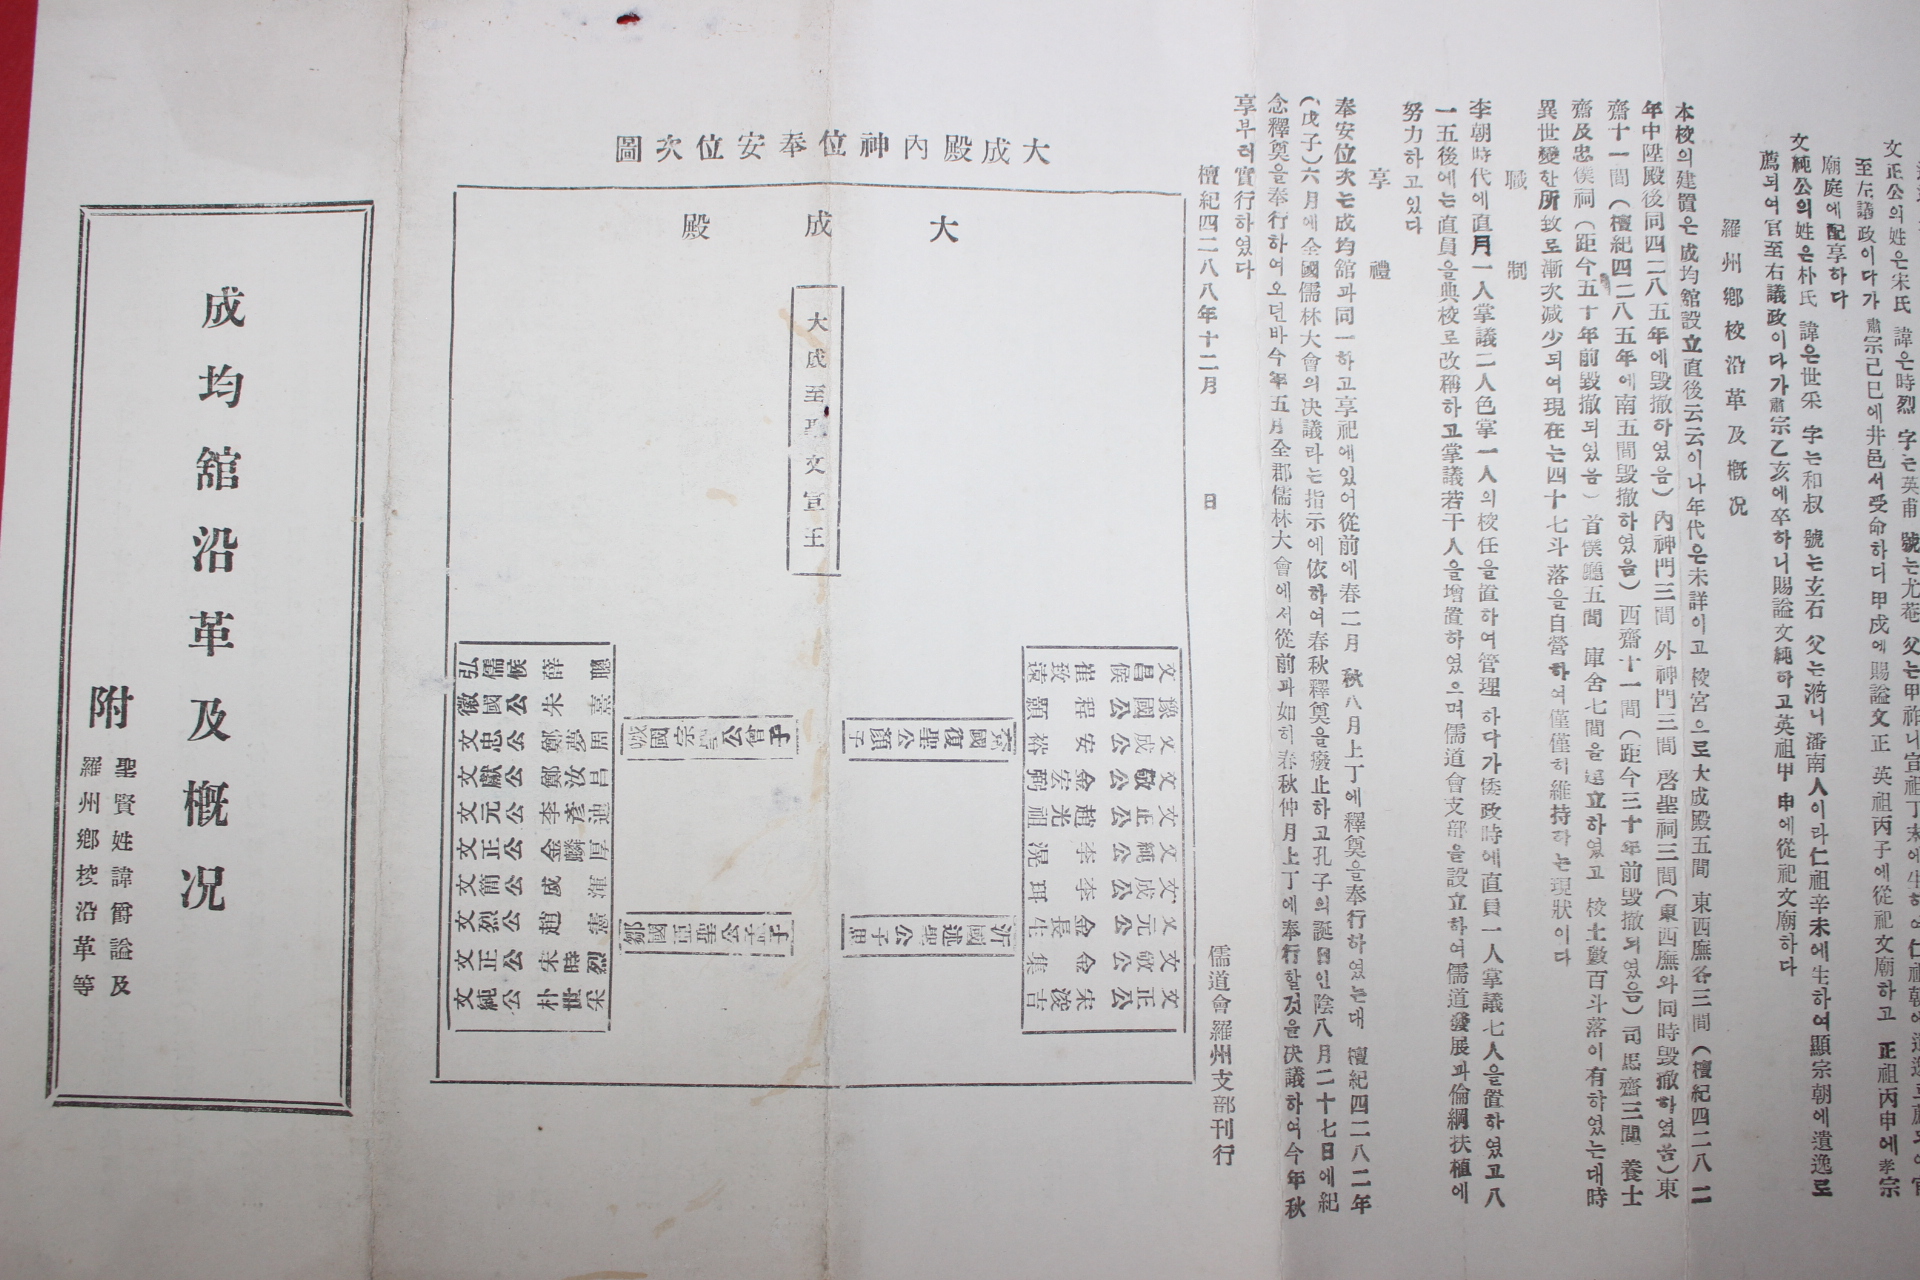 文正公의姓은宋氏 諱은時烈 字는英甫 號는尤菴 父는甲祚니宣祖丁未에生하여仁祖朝에
至左議政이다가肅宗己巳에井邑서受命하디甲戌에賜諡文正 英祖丙子에從祀文廟하고 正祖丙申에孝宗
廟庭에配享하다
文純公의姓은朴氏 諱은世采 字는和叔 號는玄石 父는濟니潘南人이라仁祖辛未에生하여顯宗朝에遺逸로
薦되여官至右議政이다가肅宗乙亥에卒하니賜諡文純하고英祖甲申에從祀文廟하다
羅州鄕校沿革及槪况
本校의建置은成均舘設立直後云云이나年代은未詳이고校宮으로大成殿五間 東西廡各三間(檀紀四二八二
年中陞殿後同四二八五年에毁撤하였음)內神門三間 外神門三間 啓聖祠三間(東西廡와同時毁撤하였음)東
齋十一間(檀紀四二八五年에南五間毁撤하였음)西齋十一間(距今三十年前毁撤되였음)司馬齋三間 養士
齋及忠僕祠(距今五十年前毁撤되였음)首僕廳五間 庫舍七間을建立하였고 校土數百斗落이有하였는대時
異世變한所致로漸次減少되여現在는四十七斗落을自營하여僅僅히維持하는現狀이다
職制
李朝時代에直月一人掌議二人色掌一人의校任을置하여管理하다가倭政時에直員一人掌議七人을置하였고八
一五後에는直員을典校로改稱하고掌議若干人을增置하였으며儒道會支部을設立하여儒道發展과倫綱扶植에
努力하고있다
享禮
奉安位次는成均舘과同一하고享祀에있어從前에春二月 秋八月上丁에釋奠을奉行하였는대 檀紀四二八二年
(戊子)六月에全國儒林大會의决議라는指示에依하여春秋釋奠을癈止하고孔子의誕日인陰八月二十七日에紀
念釋奠을奉行하여오던바今年五月全郡儒林大會에서從前과如히春秋仲月上丁에奉行할것을决議하여今年秋
享부터實行하였다
檀紀四二八八年十二月 日 儒道會羅州支部刊行
大成殿內神位奉安位次圖
大成殿
大成至聖文宣王
文昌侯崔致遠
豫國公程顥
文成公安裕
文敬公金宏弼
文正公趙光祖
文純公李滉
文成公李珥
文元公金長生
文敬公金集
文正公宋浚吉
兗國復聖公顔子
沂國述聖公子思
郕國宗聖公曾子
鄒國亞聖公孟子
弘儒侯薛聰
徽國公朱熹
文忠公鄭夢周
文獻公鄭汝昌
文元公李彥迪
文正公金麟厚
文簡公成渾
文烈公趙憲
文正公宋時烈
文純公朴世采
成均舘沿革及槪况
附
聖賢姓諱爵諡及
羅州鄕校沿革等